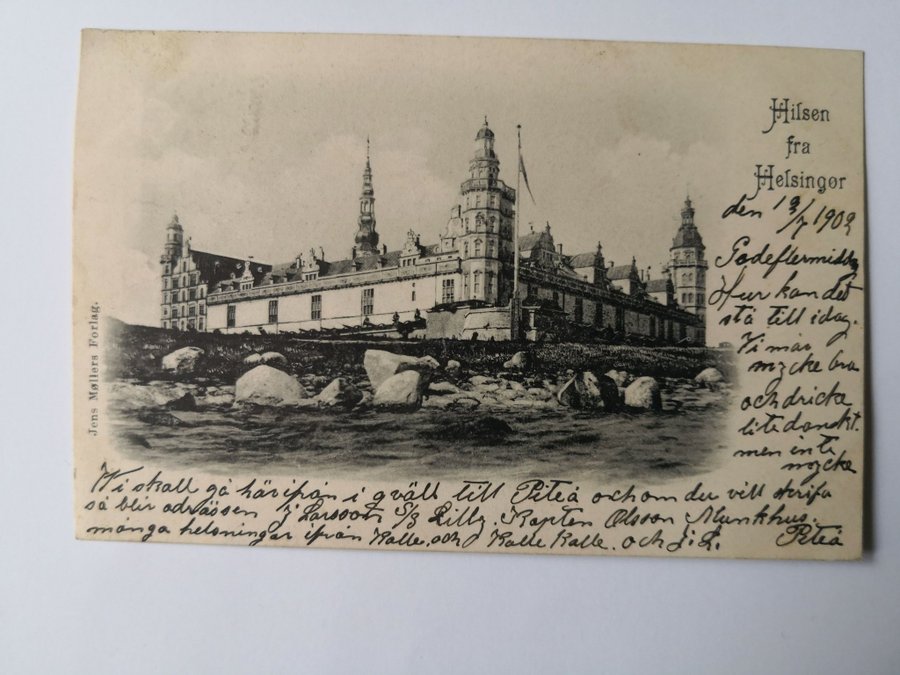 Hilsen
fra
Helsingør
Jens Møllers Forlag.
den 19/7 1902
Godeftermidda
Hur kan det
stå till idag.
Vi mår
mycke bra
och dricke
lite danskt.
men inte
mycke
Vi skall gå härifrån i qväll till Piteå och om du vill skrifa
så blir adrässen J Larsson S/S Lilly. Kapten Olsson Munkhus.
många helsningar ifrån Kalle, och Kalle Kalle. och J. L. Piteå